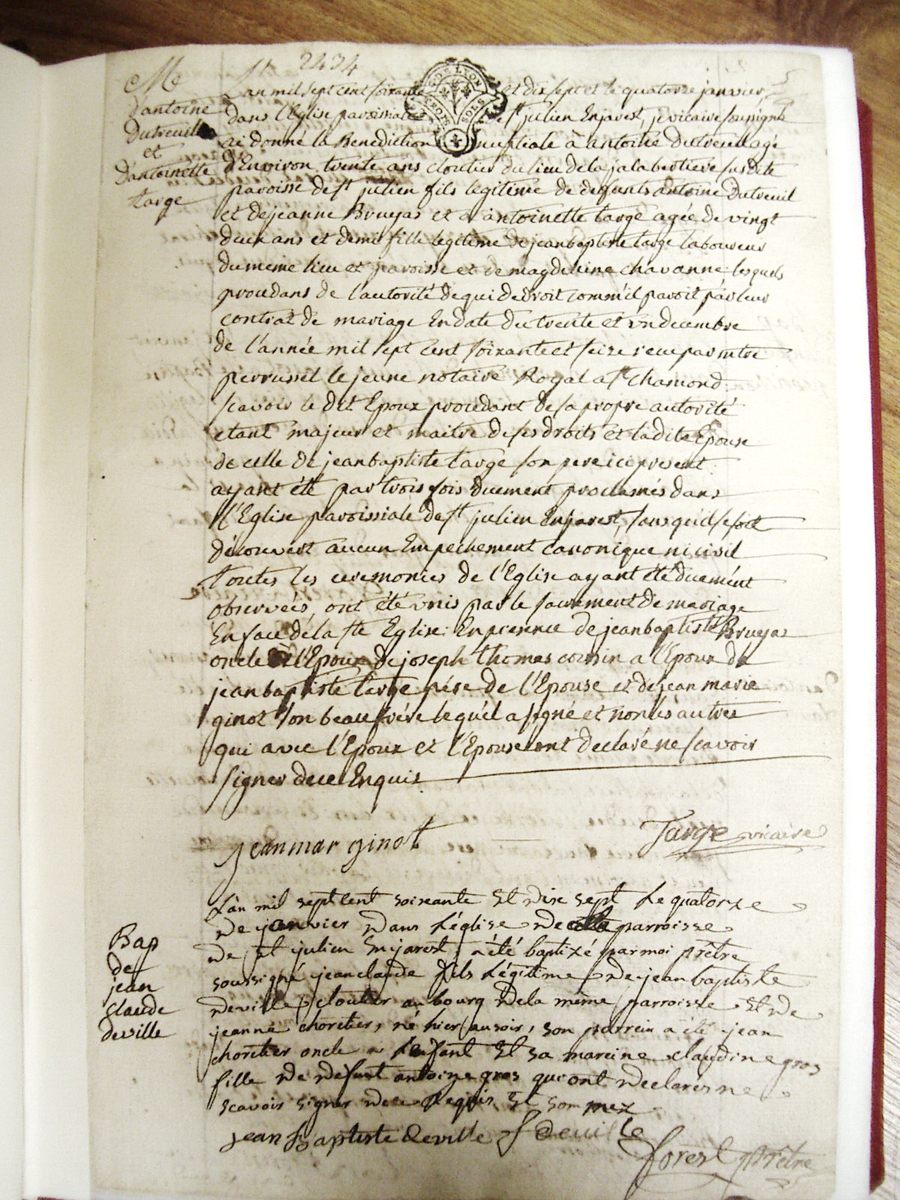 2434
M
d'antoine
Dutreuil
et
D'antoinette
targe
L'an mil sept cent soixante et dix sept et le quatorze janvier
dans l'Eglise paroissiale St julien Enjarest, je vicaire soussigné
ai donné la Benediction nuptiale à antoine dutreuil agé
d'Environ trente ans cloutier du lieu de la jalabertiere susdite
paroisse de St julien fils legitime de deffunts antoine Dutreuil
et de jeanne Bruyas et a antoinette targe agée de vingt
deux ans et demi fille legitime de jean baptiste targe laboureur
du même lieu et paroisse et de magdeleine chavanne lesquels
procedans de l'autorité de qui de droit comm'il paroit par leur
contrat de mariage En date du trente et un decembre
de l'année mil sept cent soixante et seize recu par mtre
perrussel le jeune notaire Royal a St chamond;
scavoir le dit Epoux procedant de sa propre autorité
etant majeur et maitre de ses droits et ladite Epouse
de celle de jean baptiste targe son pere ice present
ayant été par trois fois duement proclamés dans
l'Eglise paroissiale de St julien Enjarest, sans qu'il se soit
découvert aucun Empechement canonique ni civil
toutes les ceremonies de l'Eglise ayant été duement
observées, ont été unis par le sacrement de mariage
En face de la Ste Eglise: En presence de jean baptiste Bruyas
oncle a l'Epoux de joseph thomas cousin a l'Epoux de
jean baptiste targe pére de l'Epouse et de jean marie
ginot son beau frére lequel a signé et non les autres
qui avec l'Epoux et l'Epouse ont declaré ne scavoir
signer de ce Enquis
jeanmar ginot
Targe vicaire
Bap
de
jean
claude
deville
L'an mil sept cent soixante et dix sept le quatorze
de janvier dans l'église de parroisse
de st julien Enjarest, a été baptizé par moi prêtre
soussigné jean claude fils légitime de jean baptiste
deville cloutier au bourg de la meme parroisse et de
jeanne chorétier, né hier au soir, son parrein a été jean
chorétier oncle a l'enfant et sa mareine claudine gros
fille de défunt antoine gros qui ont declarés ne
scavoir signer de ce Requis et sommez
jean Baptiste deville J deville
forest prêtre